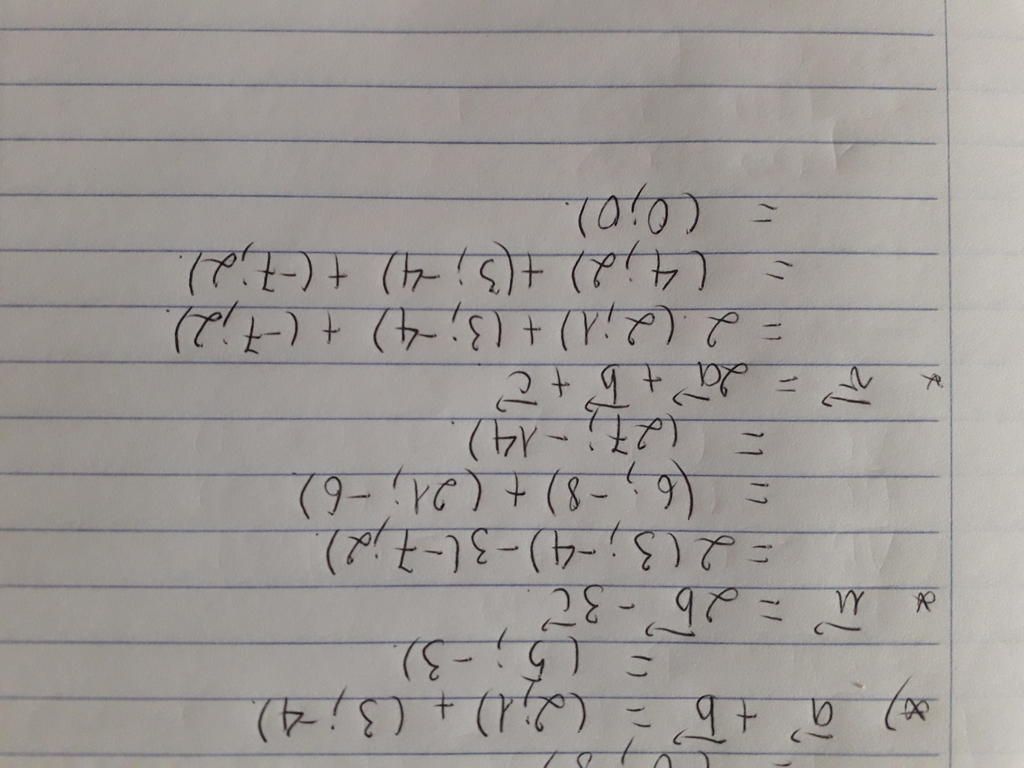 *) a⃗ + b⃗ = (2;1) + (3; -4)
= (5; -3)
* u⃗ = 2b⃗ - 3c⃗
= 2(3; -4) - 3(-7; 2)
= (6; -8) + (21; -6)
= (27; -14)
* v⃗ = 2a⃗ + b⃗ + c⃗
= 2.(2;1) + (3; -4) + (-7;2)
= (4;2) + (3; -4) + (-7;2)
= (0;0).